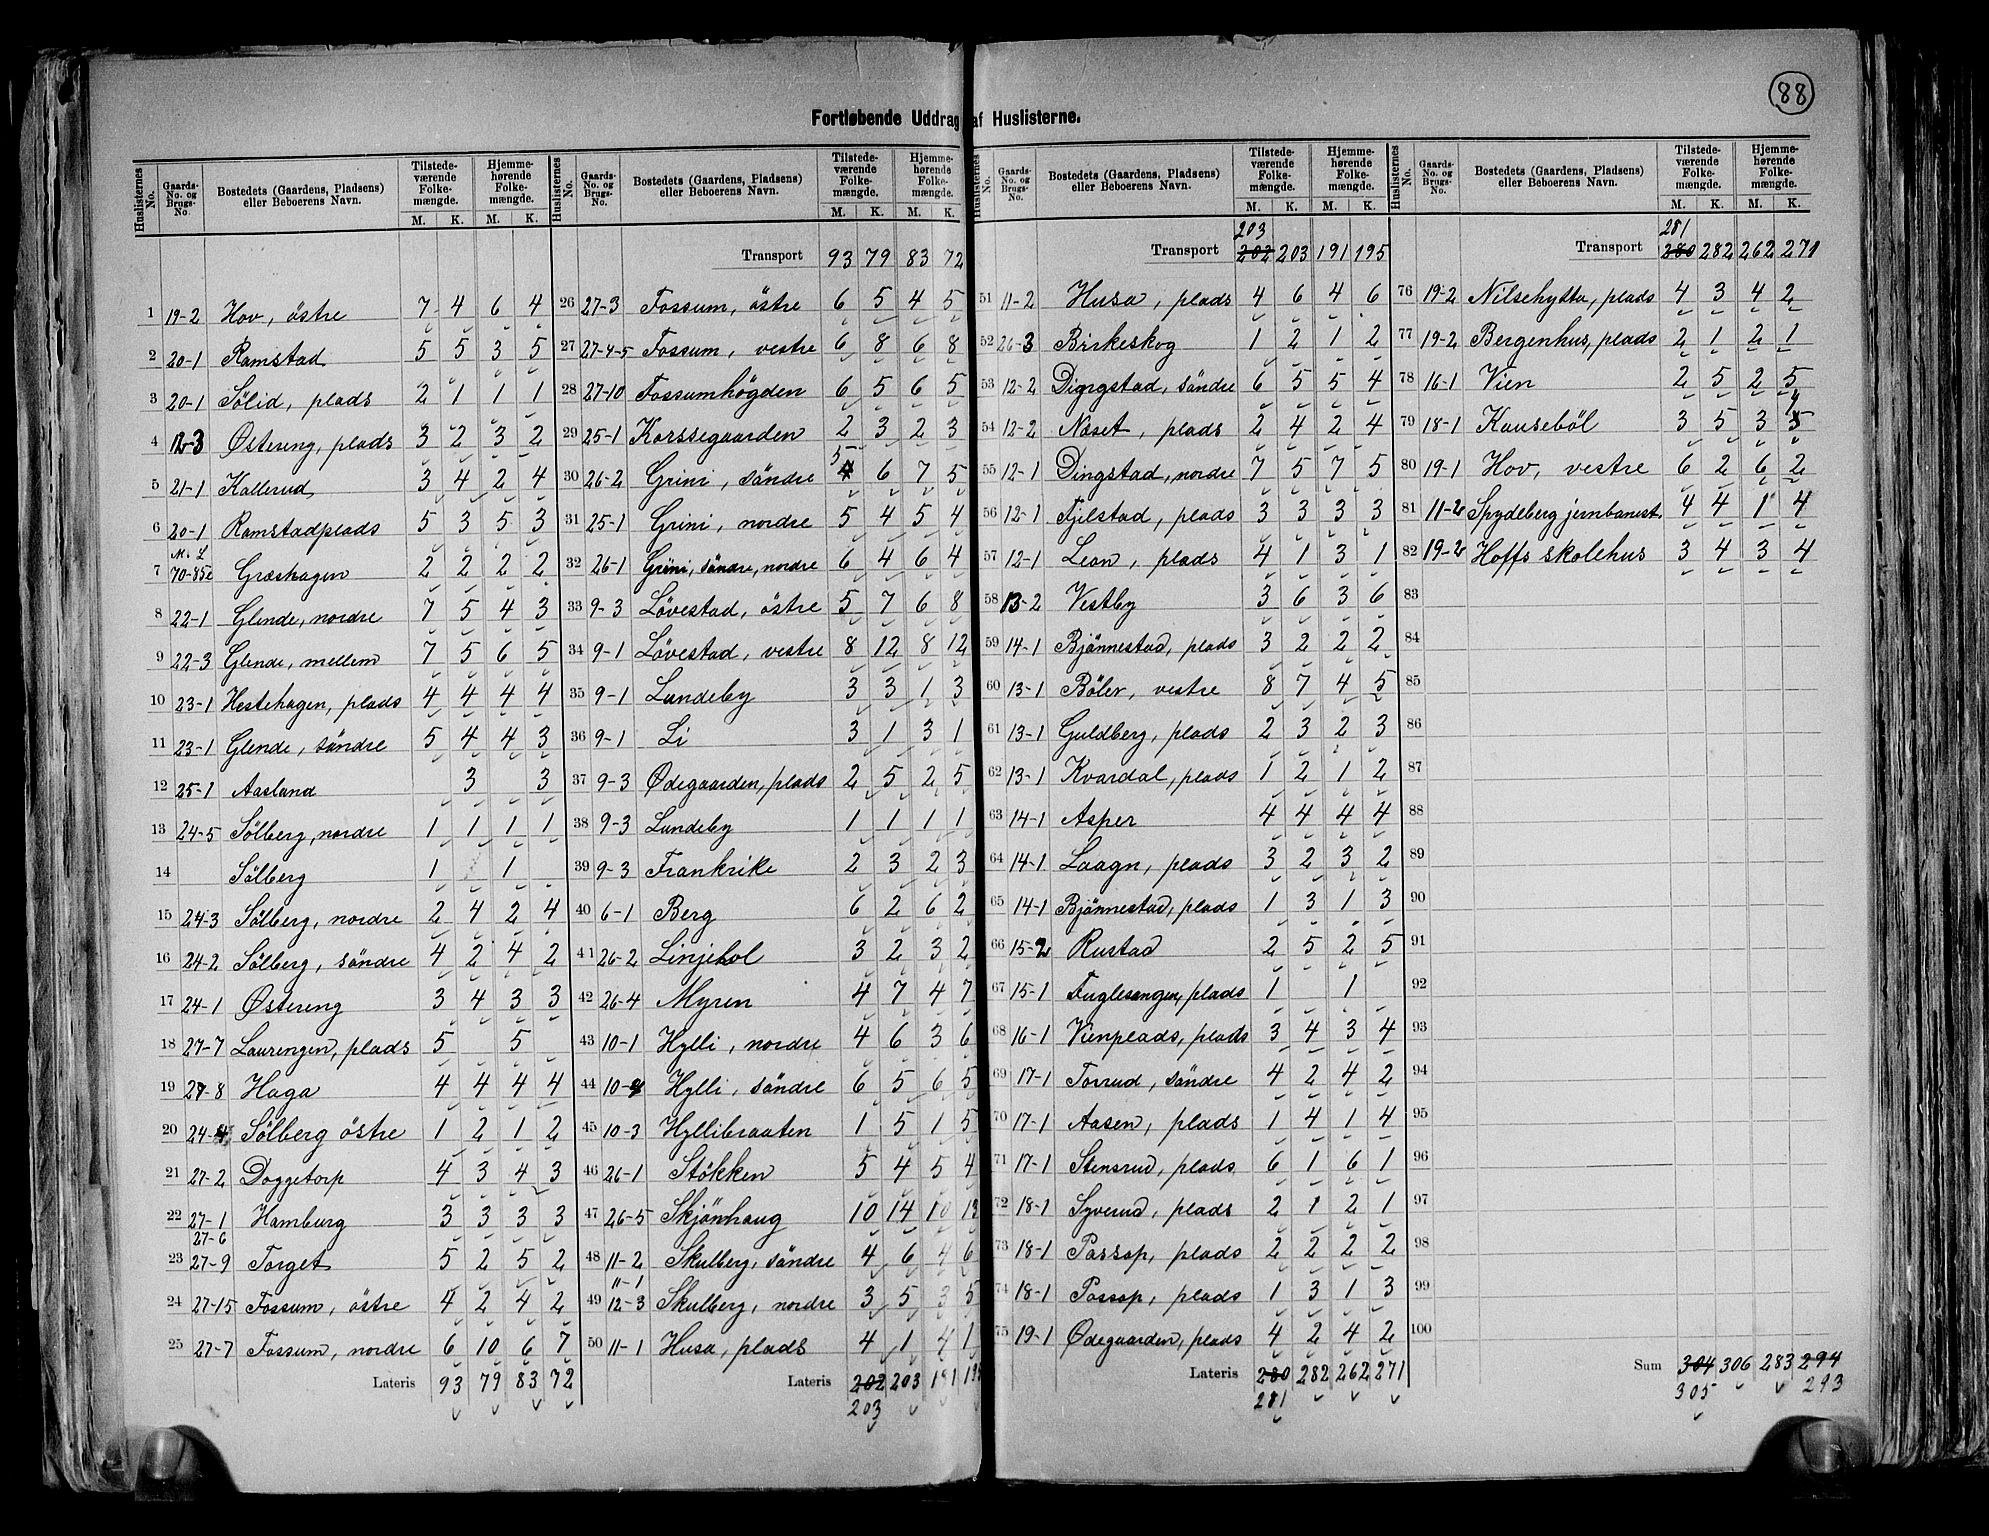 88
Fortløbende Uddrag af Huslisterne.
Huslisternes No. Gaards- No. og Brugs- No. Bostedets (Gaardens, Pladsens) eller Beboerens Navn. Tilstede- værende Folke- mængde. M. K. Hjemme- hørende Folke- mængde. M. K.
1 19-2 Hov, östre 7 4 6 4
2 20-1 Ramstad 5 5 3 5
3 20-1 Sölid, plads 2 1 1 1
4 12-3 Østereng, plads 3 2 3 2
5 21-1 Kallerud 3 4 2 4
6 20-1 Ramstadplads 5 3 5 3
7 M. L 70-85c Græshagen 2 2 2 2
8 22-1 Glende, nordre 7 5 4 3
9 22-3 Glende, mellem 7 5 6 5
10 23-1 Hestehagen, plads 4 4 4 4
11 23-1 Glende, söndre 5 4 4 3
12 25-1 Aasland 3 3
13 24-5 Sölberg, nordre 1 1 1 1
14 Sölberg 1 1
15 24-3 Sölberg, nordre 2 4 2 4
16 24-2 Sölberg, söndre 4 2 4 2
17 24-1 Østereng 3 4 3 3
18 27-7 Laurengen, plads 5 5
19 27-8 Haga 4 4 4 4
20 24-4 Sölberg östre 1 2 1 2
21 27-2 Doggetorp 4 3 4 3
22 27-1 Hamburg 3 3 3 3
23 27-6 27-9 Torget 5 2 5 2
24 27-15 Fossum, östre 4 2 4 2
25 27-7 Fossum, nordre 6 10 6 7
Lateris 93 79 83 72
Huslisternes No. Gaards- No. og Brugs- No. Bostedets (Gaardens, Pladsens) eller Beboerens Navn. Tilstede- værende Folke- mængde. M. K. Hjemme- hørende Folke- mængde. M. K.
Transport 93 79 83 72
26 27-3 Fossum, östre 6 5 4 5
27 27-4-5 Fossum, vestre 6 8 6 8
28 27-10 Fossumhögden 6 5 6 5
29 25-1 Korssegaarden 2 3 2 3
30 26-2 Grini, söndre 5 4 6 7 5
31 25-1 Grini, nordre 5 4 5 4
32 26-1 Grini, söndre, nordre 6 4 6 4
33 9-3 Lövestad, östre 5 7 6 8
34 9-1 Lövestad, vestre 8 12 8 12
35 9-1 Lundeby 3 3 1 3
36 9-1 Li 3 1 3 1
37 9-3 Ødegaarden, plads 2 5 2 5
38 9-3 Lundeby 1 1 1 1
39 9-3 Frankrike 2 3 2 3
40 6-1 Berg 6 2 6 2
41 26-2 Linjehol 3 2 3 2
42 26-4 Myren 4 7 4 7
43 10-1 Hylli, nordre 4 6 3 6
44 10- Hylli, söndre 6 5 6 5
45 10-3 Hyllibraaten 1 5 1 5
46 26-1 Stökken 5 4 5 4
47 26-5 Skjönhaug 10 14 10
48 11-2 Skulberg, söndre 4 6 4 6
49 11-1 12-3 Skulberg, nordre 3 5 3 5
50 11-1 Husa, plads 4 1 4 1
Lateris 202 203 191 195
203
Huslisternes No. Gaards- No. og Brugs- No. Bostedets (Gaardens, Pladsens) eller Beboerens Navn. Tilstede- værende Folke- mængde. M. K. Hjemme- hørende Folke- mængde. M. K.
203
Transport 202 203 191 195
51 11-2 Husa, plads 4 6 4 6
52 26-3 Birkeskog 1 2 1 2
53 12-2 Dingstad, söndre 6 5 5 4
54 12-2 Næset, plads 2 4 2 4
55 12-1 Dingstad, nordre 7 5 7 5
56 12-1 Fjelstad, plads 3 3 3 3
57 12-1 Leon, plads 4 1 3 1
58 13-2 Vestby 3 6 3 6
59 14-1 Bjönnestad, plads 3 2 2 2
60 13-1 Böler, vestre 8 7 4 5
61 13-1 Guldberg, plads 2 3 2 3
62 13-1 Kvardal, plads 1 2 1 2
63 14-1 Asper 4 4 4 4
64 14-1 Laagn, plads 3 2 3 2
65 14-1 Bjönnestad, plads 1 3 1 3
66 15-2 Rustad 2 5 2 5
67 15-1 Fuglesangen, plads 1 1
68 16-1 Vienplads, plads 3 4 3 4
69 17-1 Torrud, söndre 4 2 4 2
70 17-1 Aasen, plads 1 4 1 4
71 17-1 Stensrud, plads 6 1 6 1
72 18-1 Syverud, plads 2 1 2 1
73 18-1 Possop, plads 2 2 2 2
74 18-1 Possop, plads 1 3 1 3
75 19-1 Ødegaarden, plads 4 2 4 2
Lateris 280 282 262 271
281
Huslisternes No. Gaards- No. og Brugs- No. Bostedets (Gaardens, Pladsens) eller Beboerens Navn. Tilstede- værende Folke- mængde. M. K. Hjemme- hørende Folke- mængde. M. K.
281
Transport 280 282 262 271
76 19-2 Nilsehytta, plads 4 3 4 2
77 19-2 Bergenhus, plads 2 1 2 1
78 16-1 Vien 2 5 2 5
79 18-1 Kauseböl 3 5 3 5 4
80 19-1 Hov, vestre 6 2 6 2
81 11-2 Spydeberg jernbanest. 4 4 1 4
82 19-2 Hoffs skolehus 3 4 3 4
83
84
85
86
87
88
89
90
91
92
93
94
95
96
97
98
99
100
Sum 304 306 283 294
305 293